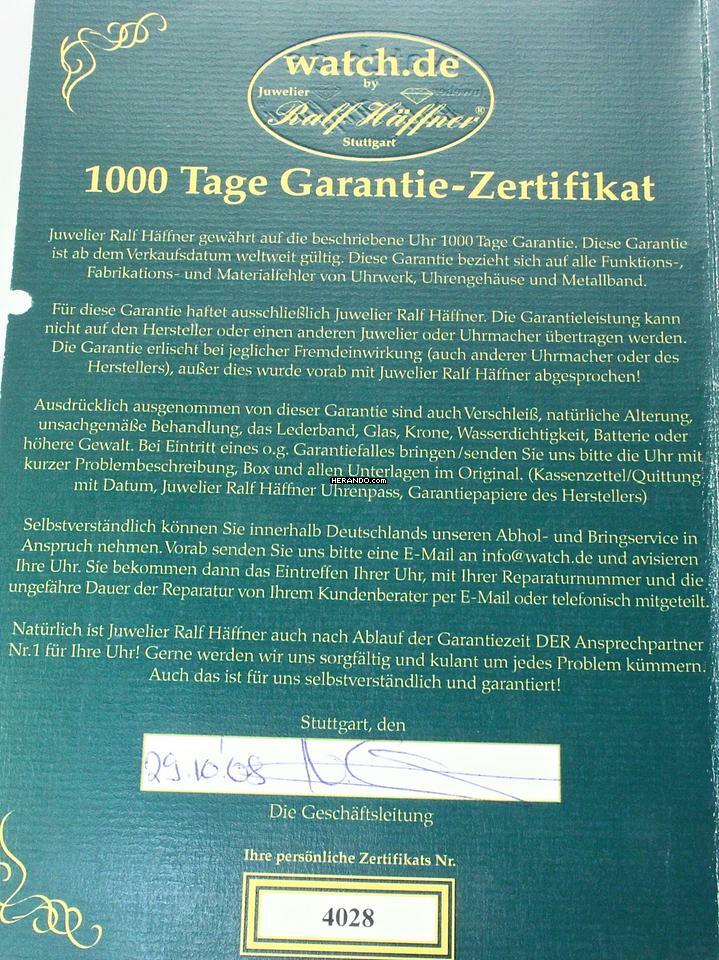 watch.de
by
Juwelier
Ralf Häffner®
Stuttgart
1000 Tage Garantie-Zertifikat
Juwelier Ralf Häffner gewährt auf die beschriebene Uhr 1000 Tage Garantie. Diese Garantie
ist ab dem Verkaufsdatum weltweit gültig. Diese Garantie bezieht sich auf alle Funktions-,
Fabrikations- und Materialfehler von Uhrwerk, Uhrengehäuse und Metallband.
Für diese Garantie haftet ausschließlich Juwelier Ralf Häffner. Die Garantieleistung kann
nicht auf den Hersteller oder einen anderen Juwelier oder Uhrmacher übertragen werden.
Die Garantie erlischt bei jeglicher Fremdeinwirkung (auch anderer Uhrmacher oder des
Herstellers), außer dies wurde vorab mit Juwelier Ralf Häffner abgesprochen!
Ausdrücklich ausgenommen von dieser Garantie sind auch Verschleiß, natürliche Alterung,
unsachgemäße Behandlung, das Lederband, Glas, Krone, Wasserdichtigkeit, Batterie oder
höhere Gewalt. Bei Eintritt eines o.g. Garantiefalles bringen/senden Sie uns bitte die Uhr mit
kurzer Problembeschreibung, Box und allen Unterlagen im Original. (Kassenzettel/Quittung
HERANDO.com
mit Datum, Juwelier Ralf Häffner Uhrenpass, Garantiepapiere des Herstellers)
Selbstverständlich können Sie innerhalb Deutschlands unseren Abhol- und Bringservice in
Anspruch nehmen. Vorab senden Sie uns bitte eine E-Mail an info@watch.de und avisieren
Ihre Uhr. Sie bekommen dann das Eintreffen Ihrer Uhr, mit Ihrer Reparaturnummer und die
ungefähre Dauer der Reparatur von Ihrem Kundenberater per E-Mail oder telefonisch mitgeteilt.
Natürlich ist Juwelier Ralf Häffner auch nach Ablauf der Garantiezeit DER Ansprechpartner
Nr.1 für Ihre Uhr! Gerne werden wir uns sorgfältig und kulant um jedes Problem kümmern.
Auch das ist für uns selbstverständlich und garantiert!
Stuttgart, den
29.10.08
Die Geschäftsleitung
Ihre persönliche Zertifikats Nr.
4028